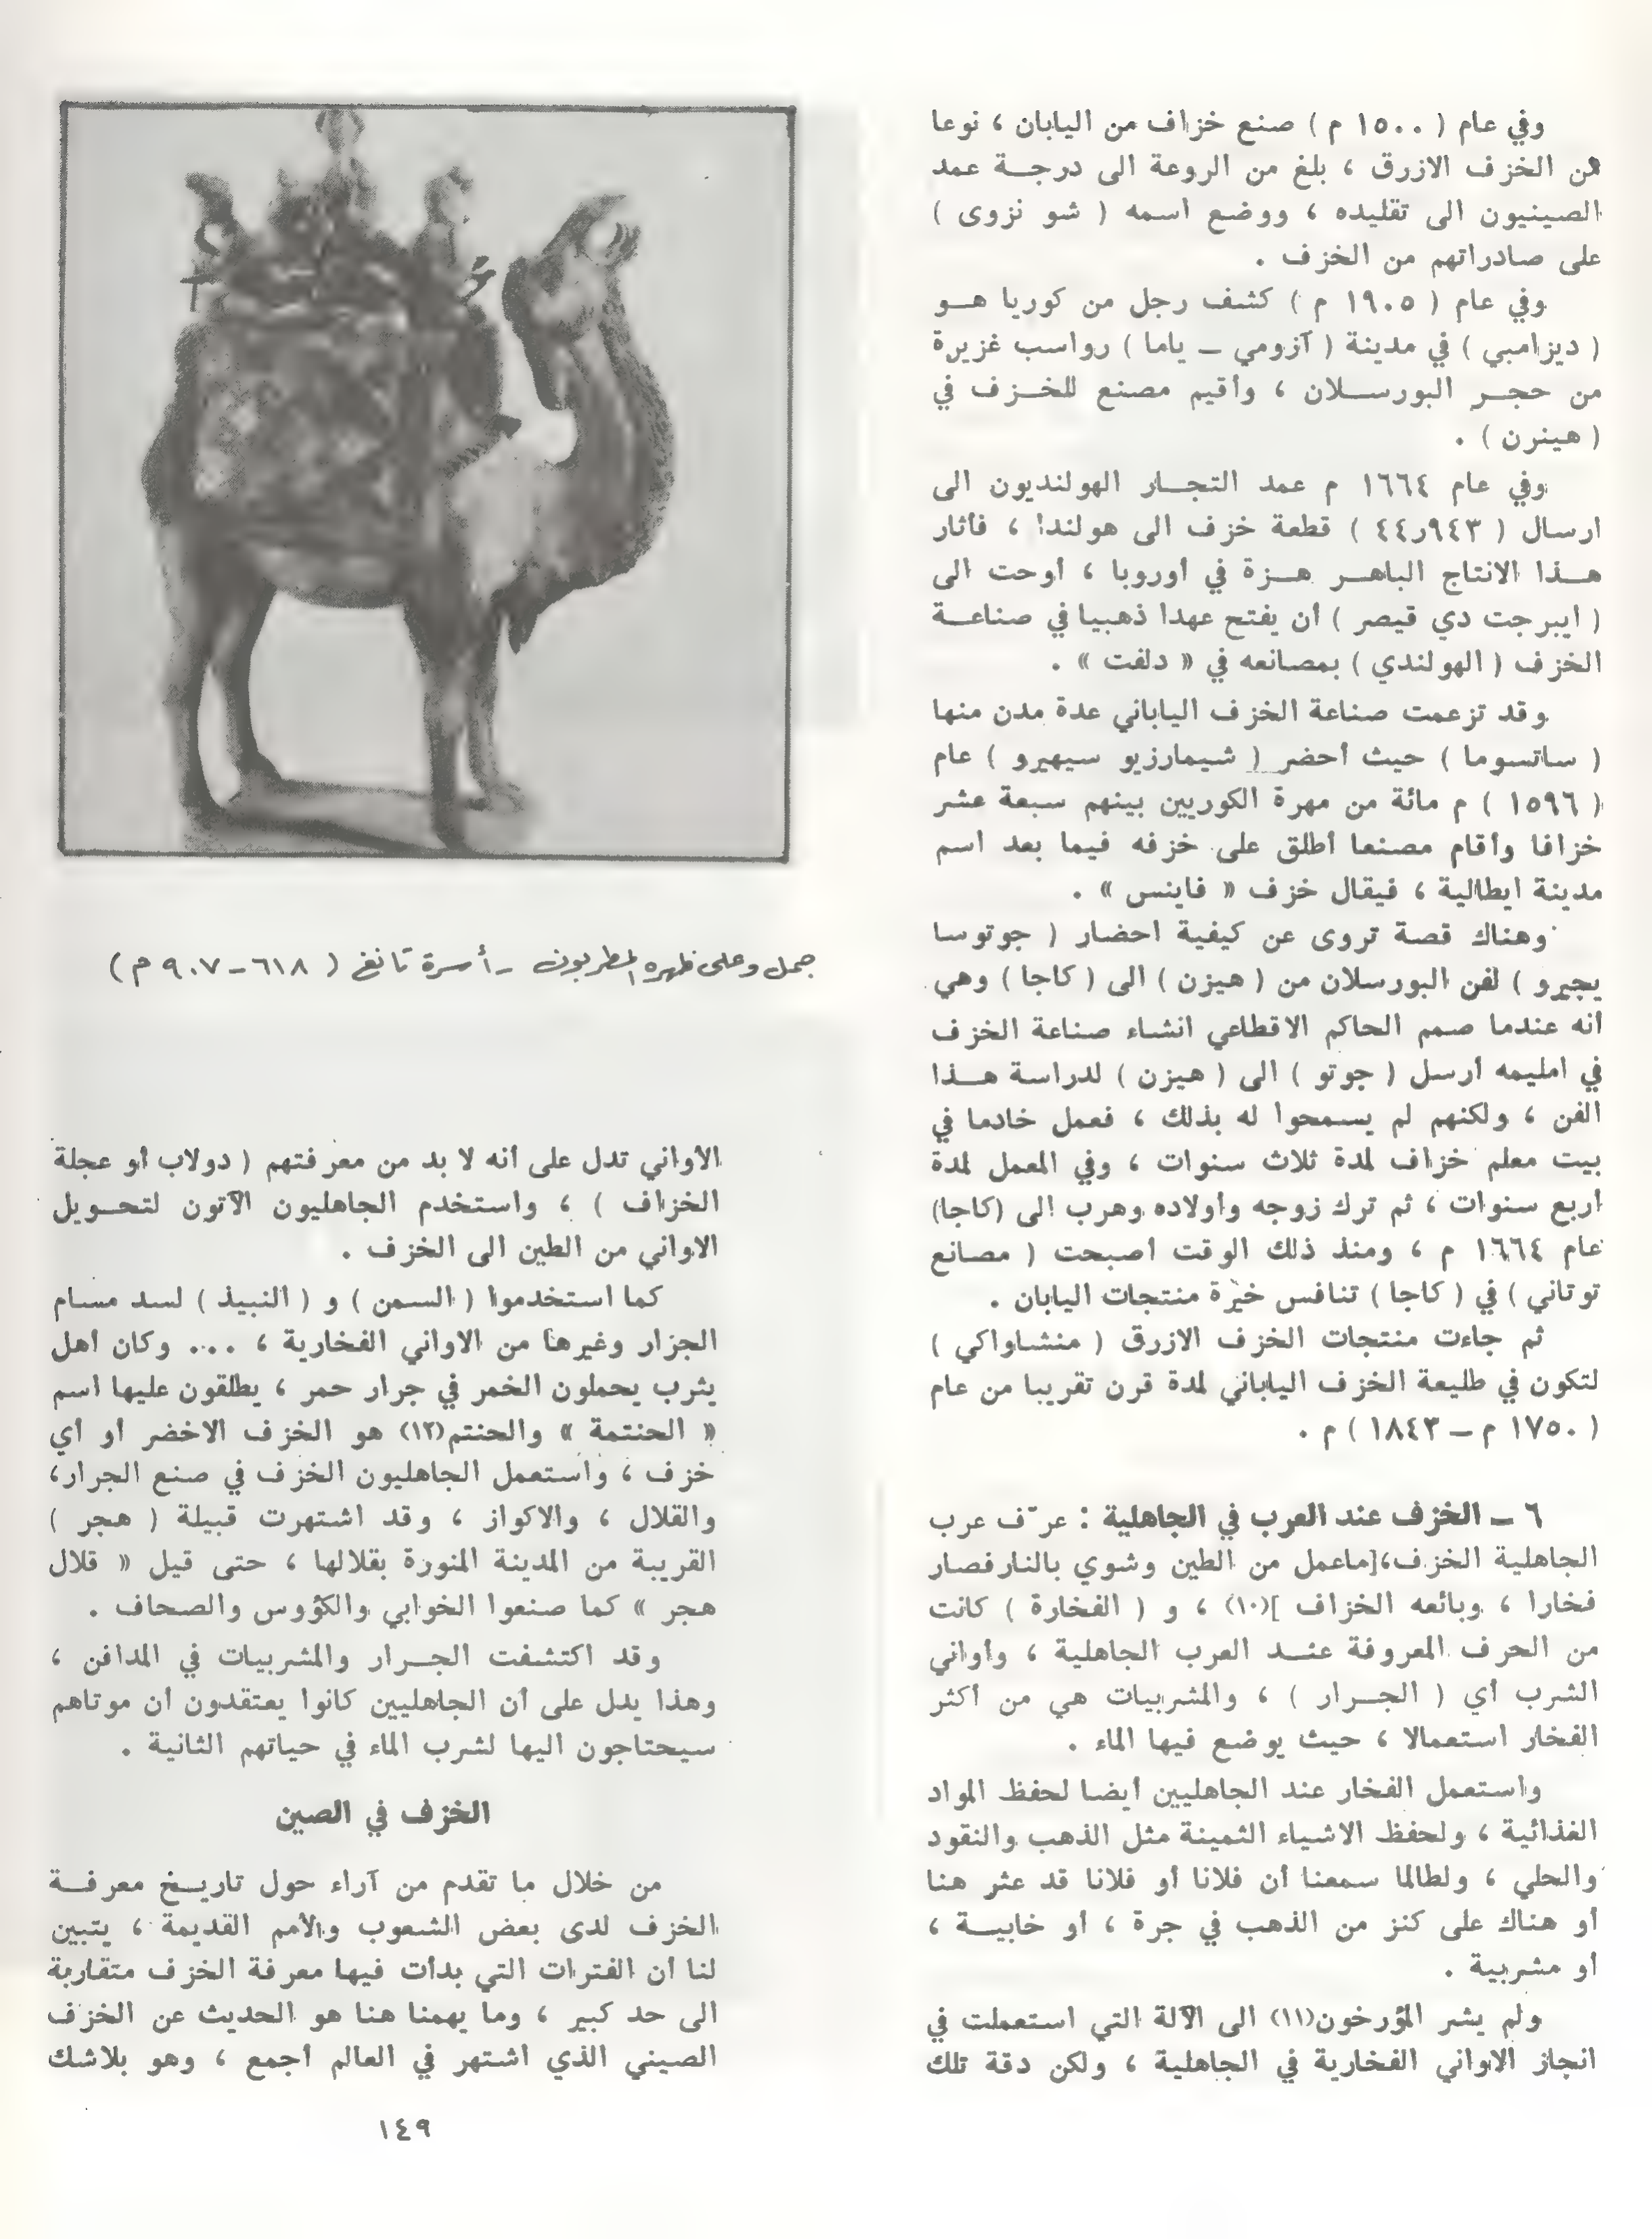 وفي عام ( ١٥٠٠ م ) صنع خزاف من اليابان ، نوعا
من الخزف الازرق ، بلغ من الروعة الى درجـة عمد
الصينيون الى تقليده ، ووضع اسمه ( شو نزوى )
على صادراتهم من الخزف .
وفي عام ( ١٩٠٥ م ) كشف رجل من كوريا هـو
( ديزامبي ) في مدينة ( آزومي – ياما ) رواسب غزيرة
من حجـر البورسـلان ، وأقيم مصنع للخـزف في
( هينرن ) .
وفي عام ١٦٦٤ م عمد التجـار الهولنديون الى
ارسال ( ٤٤ر٩٤٣ ) قطعة خزف الى هولندا ، فأثار
هـذا الانتاج الباهـر هـزة في أوروبا ، أوحت الى
( ايبرجت دي قيصر ) أن يفتح عهدا ذهبيا في صناعـة
الخزف ( الهولندي ) بمصانعه في « دلفت » .
وقد تزعمت صناعة الخزف الياباني عدة مدن منها
( ساتسوما ) حيث أحضر ( شيمارزيو سيهيرو ) عام
( ١٥٩٦ ) م مائة من مهرة الكوريين بينهم سبعة عشر
خزافا وأقام مصنعا أطلق على خزفه فيما بعد اسم
مدينة ايطالية ، فيقال خزف « فاينس » .
وهناك قصة تروى عن كيفية احضار ( جوتوسا
يجيرو ) لفن البورسلان من ( هيزن ) الى ( كاجا ) وهي
أنه عندما صمم الحاكم الاقطاعي انشاء صناعة الخزف
في امليمه أرسل ( جوتو ) الى ( هيزن ) لدراسة هـذا
الفن ، ولكنهم لم يسمحوا له بذلك ، فعمل خادما في
بيت معلم خزاف لمدة ثلاث سنوات ، وفي المعمل لمدة
اربع سنوات ، ثم ترك زوجه وأولاده وهرب الى (كاجا)
عام ١٦٦٤ م ، ومنذ ذلك الوقت أصبحت ( مصانع
توتاني ) في ( كاجا ) تنافس خيرة منتجات اليابان .
ثم جاءت منتجات الخزف الازرق ( منشاواكي )
لتكون في طليعة الخزف الياباني لمدة قرن تقريبا من عام
( ١٧٥٠ م – ١٨٤٣ ) م .
٦ – الخزف عند العرب في الجاهلية : عرّف عرب
الجاهلية الخزف،[ماعمل من الطين وشوي بالنارفصار
فخارا ، وبائعه الخزاف ](١٠) ، و ( الفخارة ) كانت
من الحرف المعروفة عنـد العرب الجاهلية ، وأواني
الشرب أي ( الجـرار ) ، والمشربيات هي من أكثر
الفخار استعمالا ، حيث يوضع فيها الماء .
واستعمل الفخار عند الجاهليين أيضا لحفظ المواد
الغذائية ، ولحفظ الاشياء الثمينة مثل الذهب والنقود
والحلي ، ولطالما سمعنا أن فلانا أو فلانا قد عثر هنا
أو هناك على كنز من الذهب في جرة ، أو خابيـة ،
أو مشربية .
ولم يشر المؤرخون(١١) الى الآلة التي استعملت في
انجاز الاواني الفخارية في الجاهلية ، ولكن دقة تلك
جمل وعلى ظهره المطربون – أسرة تانغ ( ٦١٨ – ٩٠٧ م )
الأواني تدل على أنه لا بد من معرفتهم ( دولاب أو عجلة
الخزاف ) ، واستخدم الجاهليون الآتون لتحـويل
الاواني من الطين الى الخزف .
كما استخدموا ( السمن ) و ( النبيذ ) لسد مسام
الجزار وغيرها من الاواني الفخارية ، ... وكان أهل
يثرب يحملون الخمر في جرار حمر ، يطلقون عليها اسم
« الحنتمة » والحنتم(١٢) هو الخزف الاخضر أو أي
خزف ، واستعمل الجاهليون الخزف في صنع الجرار،
والقلال ، والاكواز ، وقد اشتهرت قبيلة ( هجر )
القريبة من المدينة المنورة بقلالها ، حتى قيل « قلال
هجر » كما صنعوا الخوابي والكؤوس والصحاف .
وقد اكتشفت الجـرار والمشربيات في المدافن ،
وهذا يدل على أن الجاهليين كانوا يعتقدون أن موتاهم
سيحتاجون اليها لشرب الماء في حياتهم الثانية .
الخزف في الصين
من خلال ما تقدم من آراء حول تاريـخ معرفـة
الخزف لدى بعض الشعوب والأمم القديمة ، يتبين
لنا أن الفترات التي بدأت فيها معرفة الخزف متقاربة
الى حد كبير ، وما يهمنا هنا هو الحديث عن الخزف
الصيني الذي اشتهر في العالم أجمع ، وهو بلاشك
١٤٩